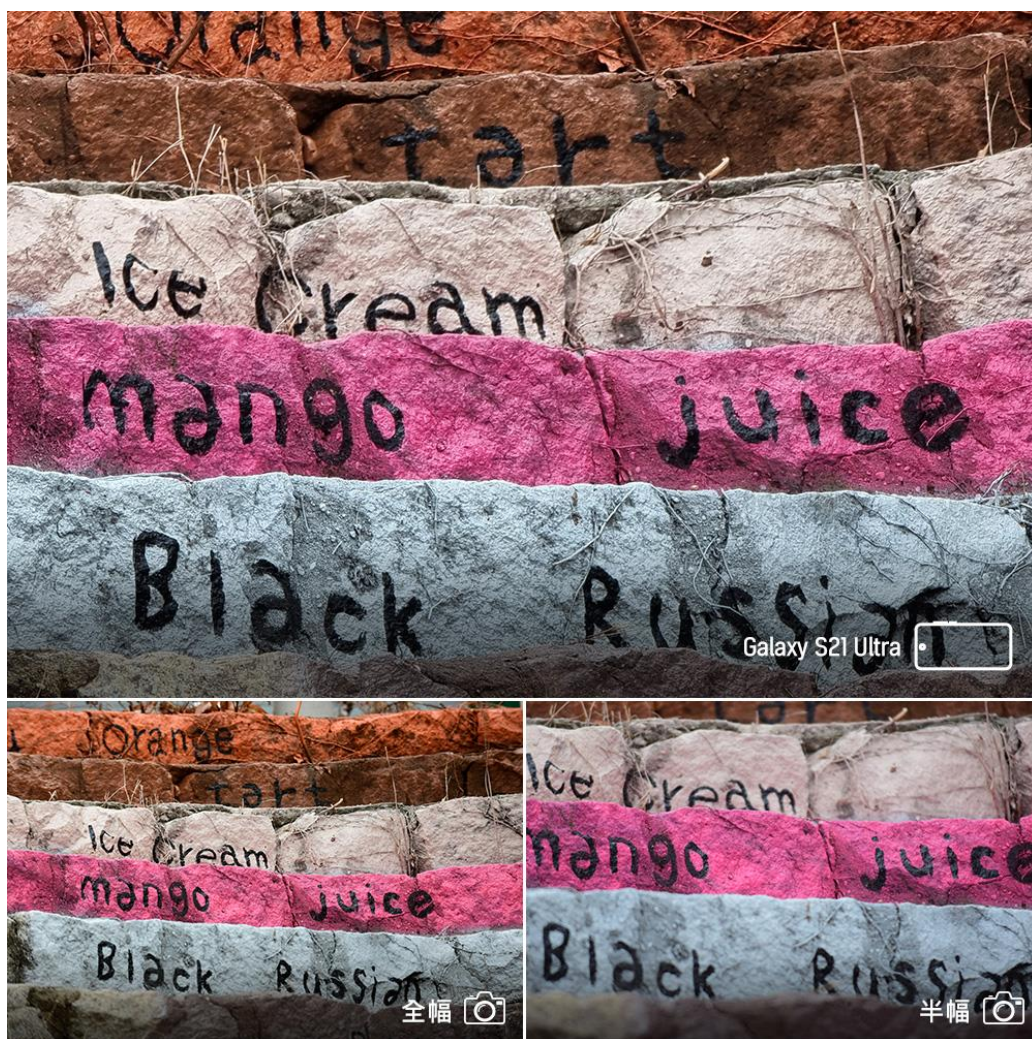 Orange
tart
Ice Cream
mango juice
Black Russian
Galaxy S21 Ultra
Orange
tart
Ice Cream
mango juice
Black Russian
全幅
tart
Ice Cream
mango juice
Black Russian
半幅